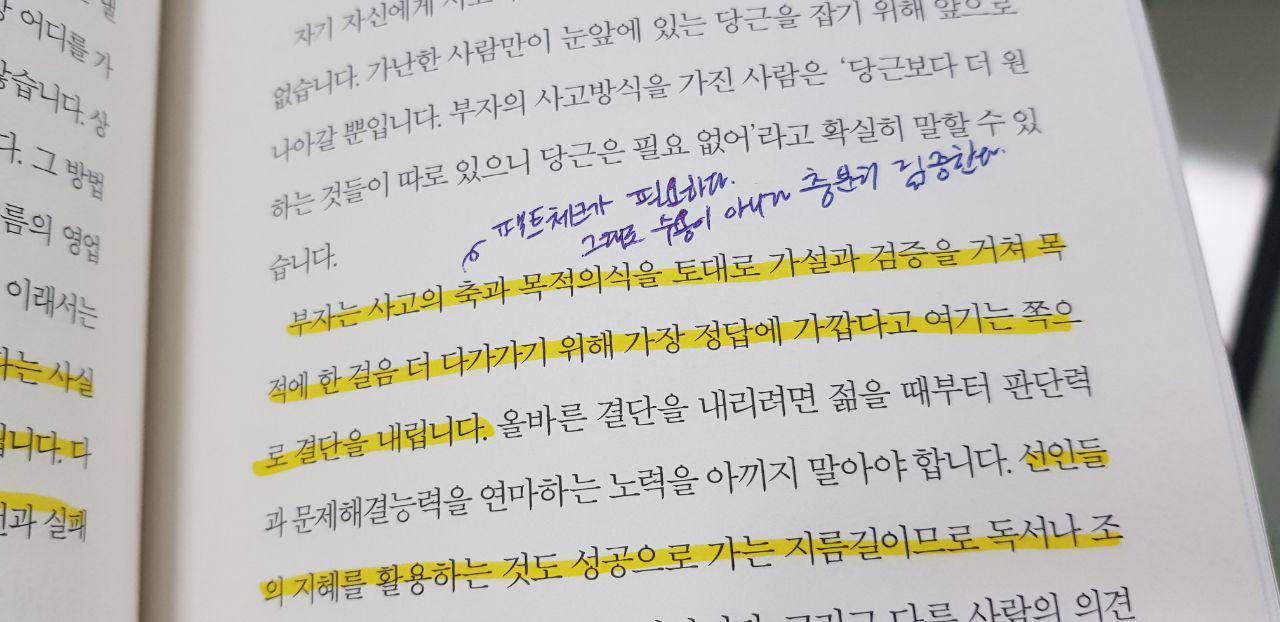 어디를 가
않습니다. 상
다. 그 방법
름의 영업
이래서는
라는 사실
됩니다. 다
과 실패
자기 자신에게
없습니다. 가난한 사람만이 눈앞에 있는 당근을 잡기 위해 앞으로
나아갈 뿐입니다. 부자의 사고방식을 가진 사람은 ‘당근보다 더 원
하는 것들이 따로 있으니 당근은 필요 없어’라고 확실히 말할 수 있
습니다.
팩트체크가 필요하다.
그대로 수용이 아니라 충분히 검증한다.
부자는 사고의 축과 목적의식을 토대로 가설과 검증을 거쳐 목
적에 한 걸음 더 다가가기 위해 가장 정답에 가깝다고 여기는 쪽으
로 결단을 내립니다. 올바른 결단을 내리려면 젊을 때부터 판단력
과 문제해결능력을 연마하는 노력을 아끼지 말아야 합니다. 선인들
의 지혜를 활용하는 것도 성공으로 가는 지름길이므로 독서나 조
그리고 다른 사람의 의견